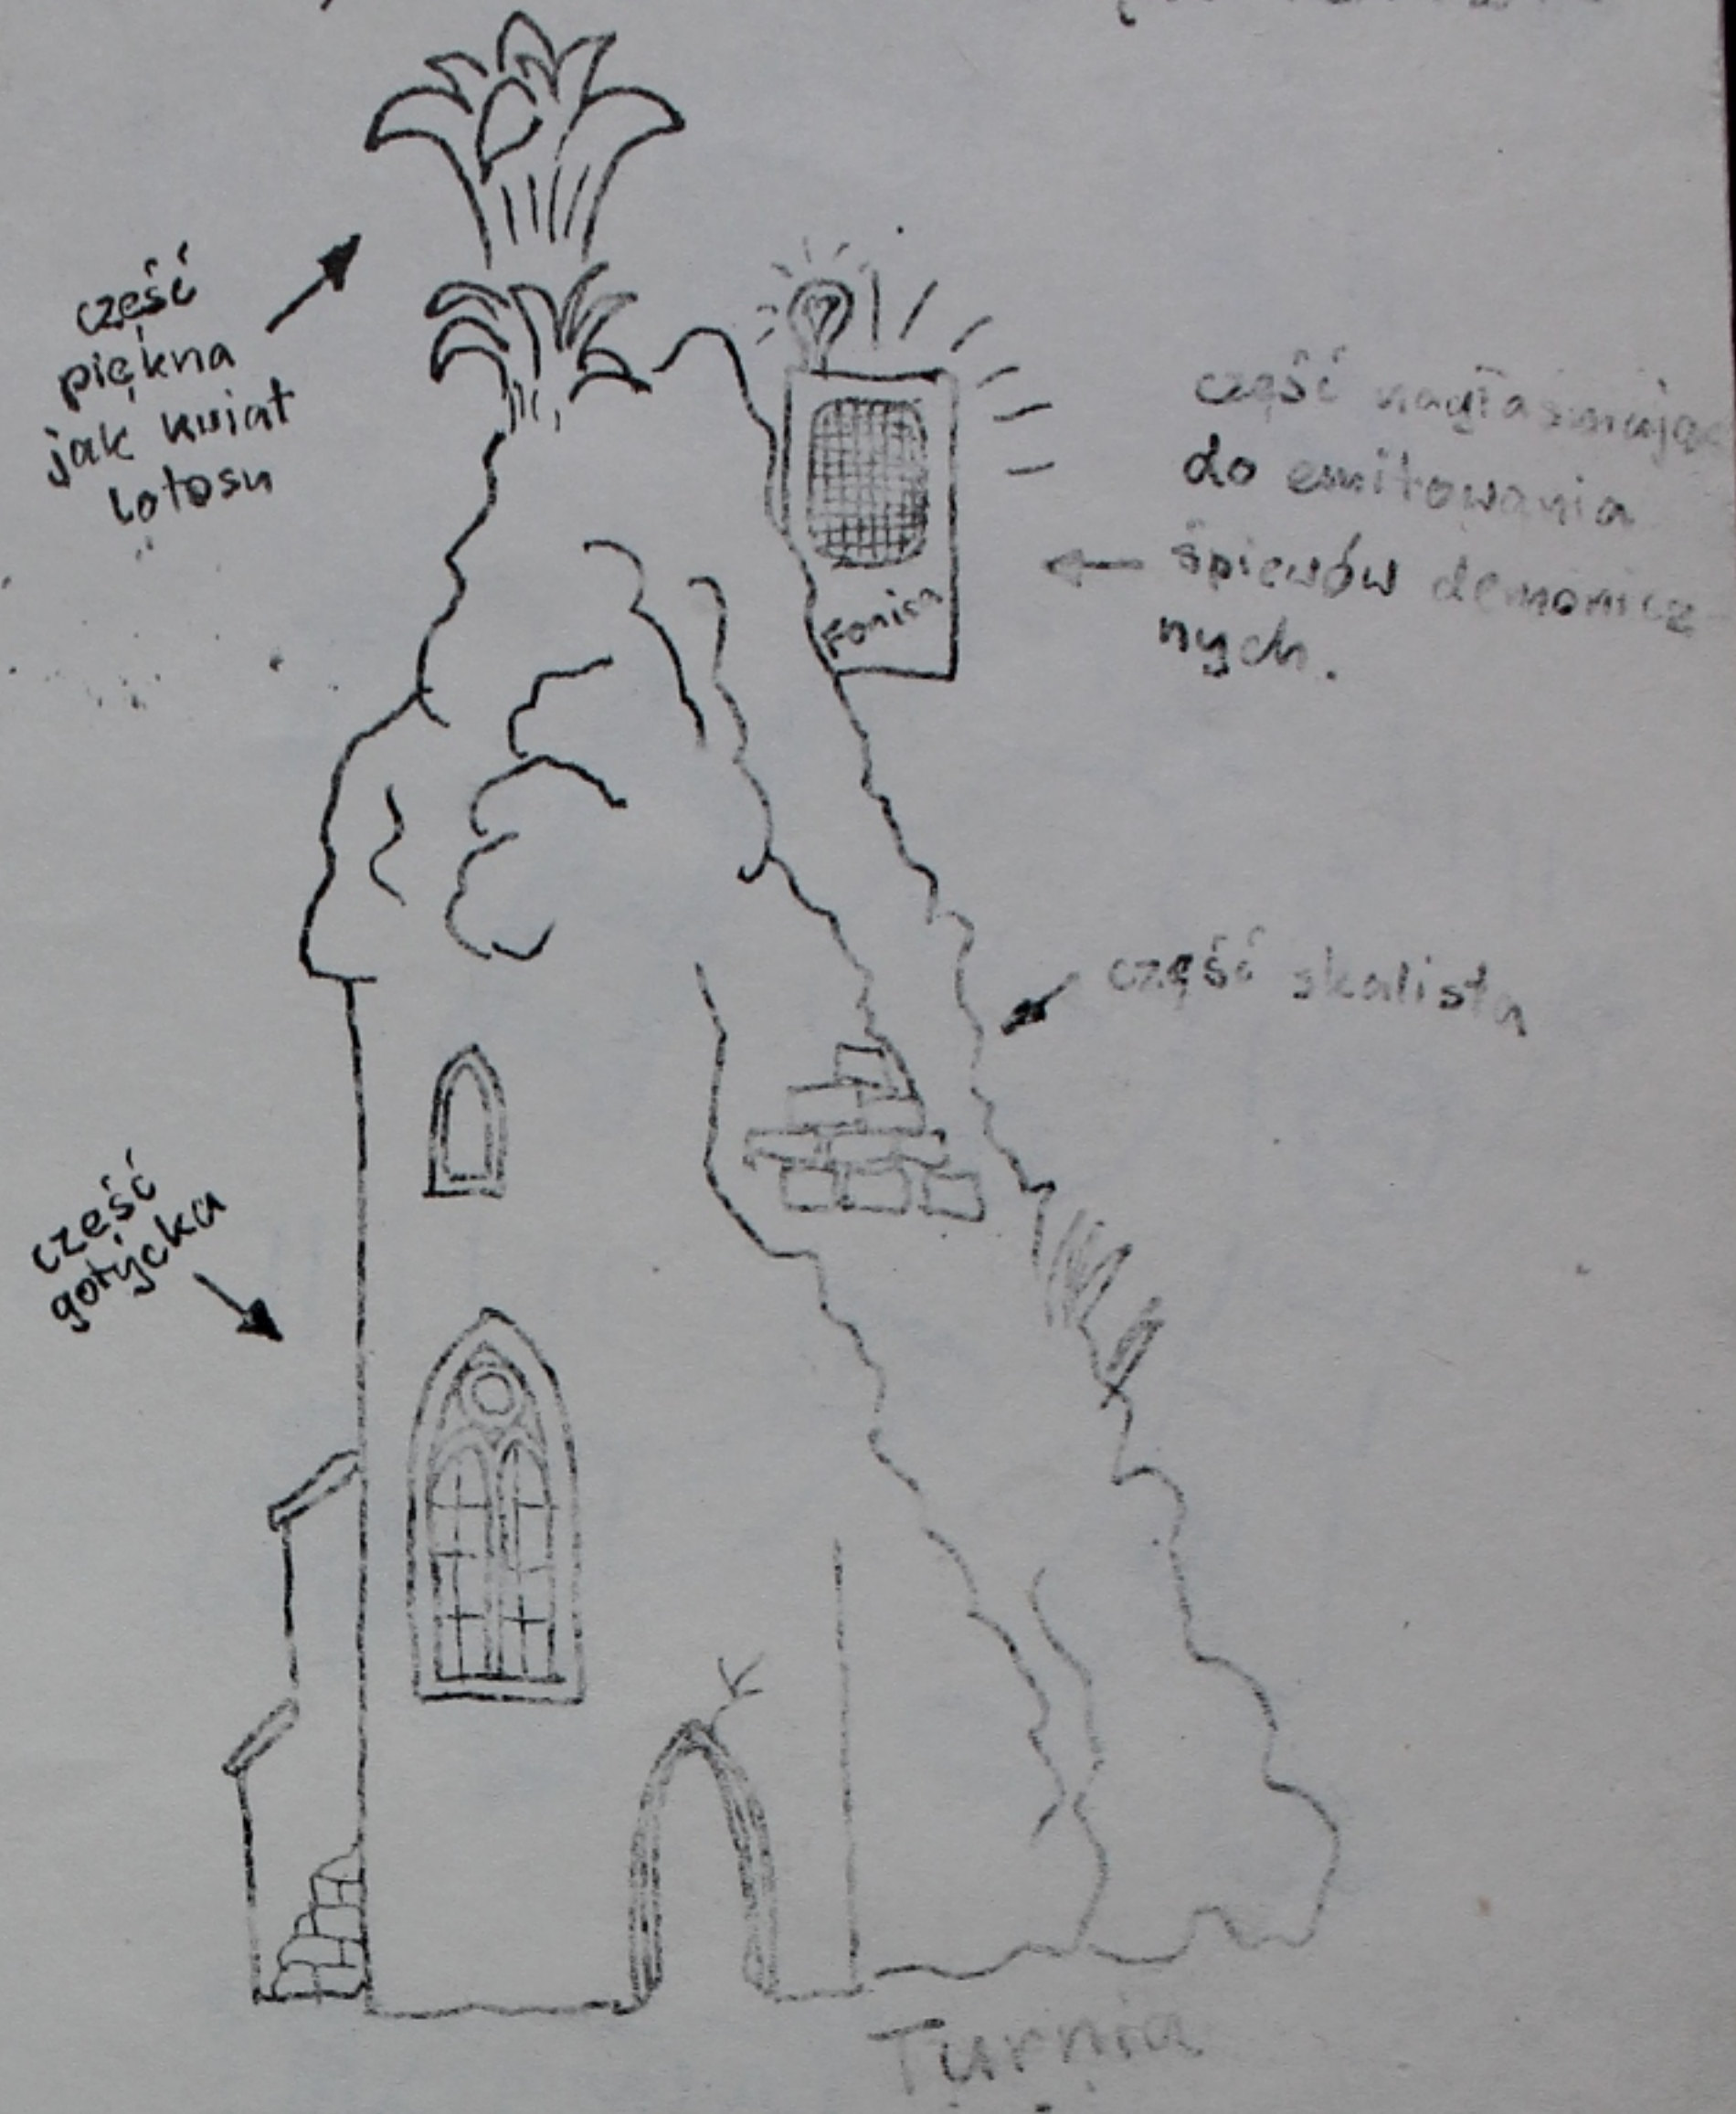 część
piękna
jak kwiat
lotosu
Fonica
część nagłaśniając
do emitowania
śpiewów demonicz
nych.
część skalista
część
gotycka
Turnia